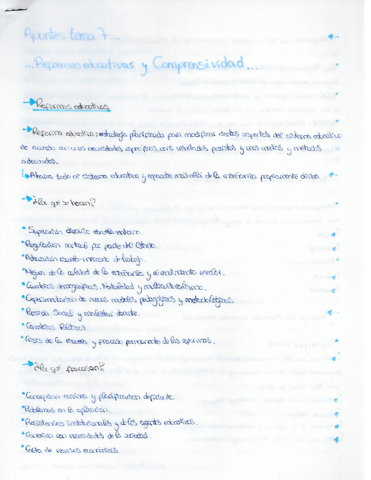 Apuntes tema 7...
...Reformas educativas y Comprensividad...
→ Reformas educativas
→ Reforma educativa: estrategia planificada para modificar ciertos aspectos del sistema educativo
de acuerdo con unas necesidades específicas, unos resultados previstos y unos medios y métodos
adecuados.
Abarca todo el sistema educativo y repercute más allá de la enseñanza propiamente dicha.
→ ¿Por qué se hacen?
• Superación
• Regulación control por parte del Estado.
• Adecuación escuela-mercado de trabajo.
• Mejora de la calidad de la enseñanza y el rendimiento escolar.
• Cambios demográficos. Natalidad y multiculturalismo.
• Experimentación de nuevos modelos pedagógicos y metodológicos.
• Presión Social y docente.
• Cambios Políticos.
• Crisis de la escuela y proceso permanente de las reformas.
→ ¿Por qué fracasan?
• Concepción y planificación deficiente.
• Problemas en la aplicación.
• Resistencias institucionales y de los agentes educativos.
• Conexión con necesidades de la sociedad.
• Falta de recursos económicos.